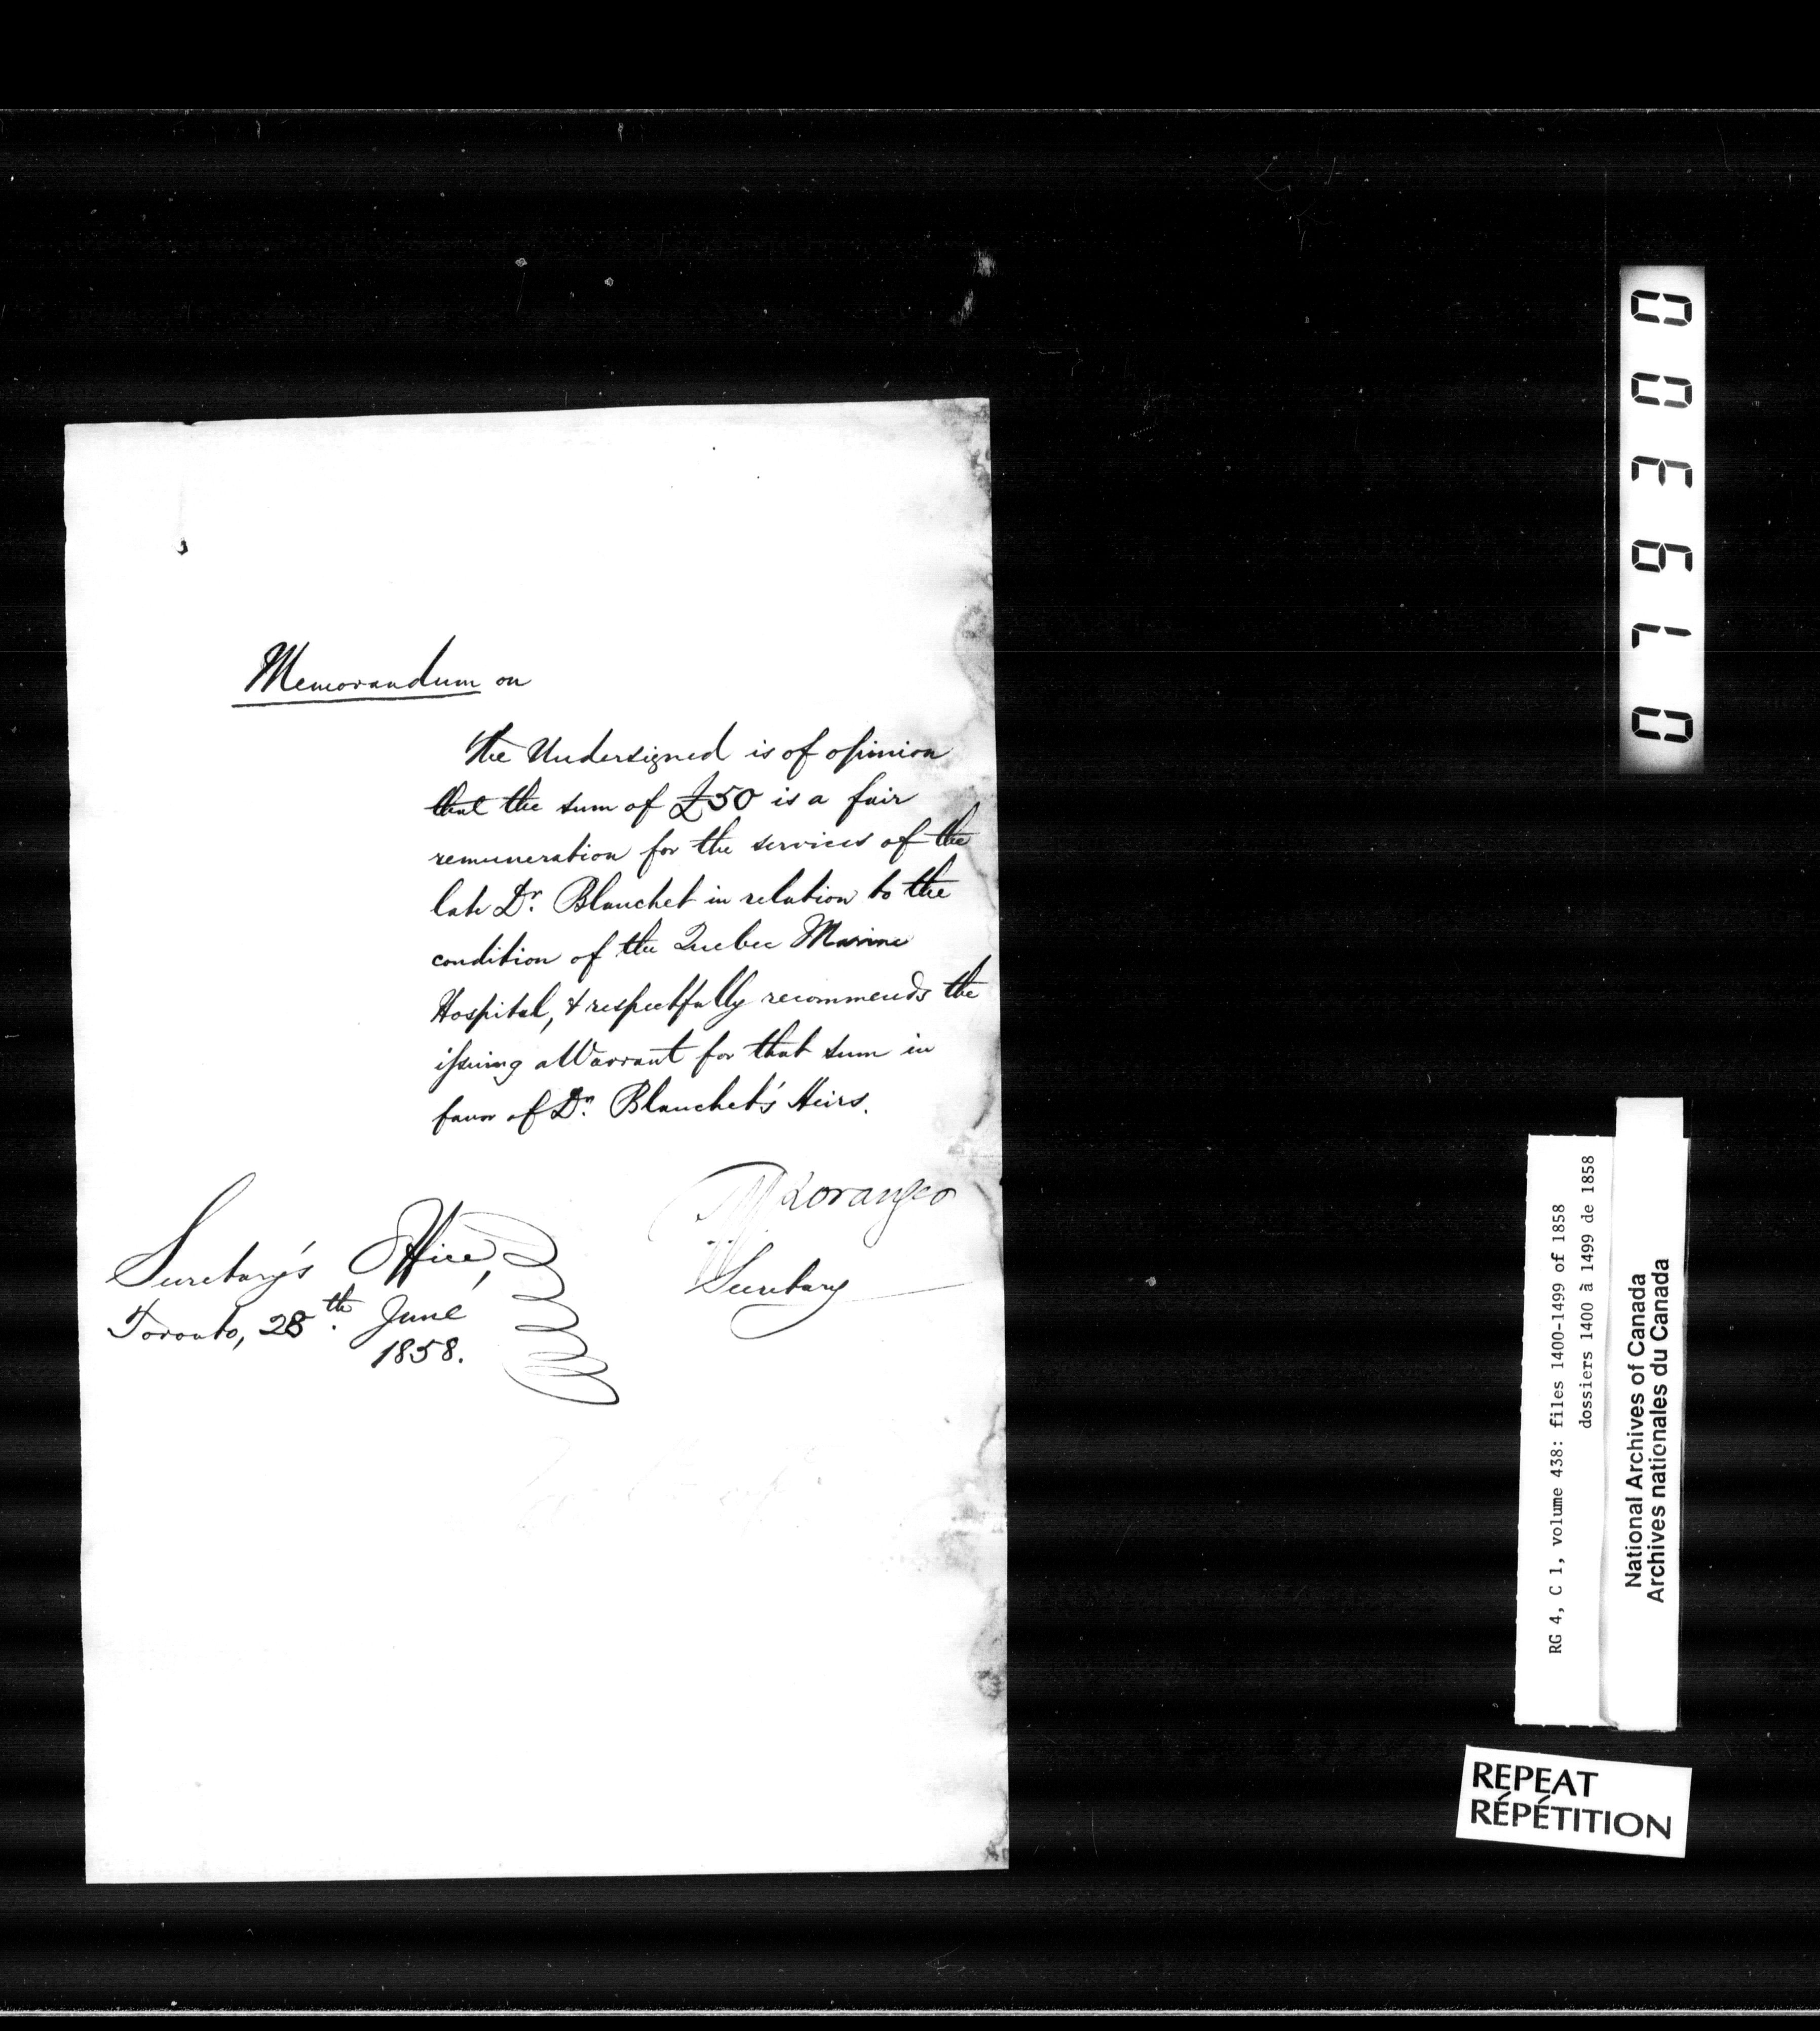 Memorandum on
The Undersigned is of opinion
that the sum of £50 is a fair
remuneration for the services of the
late Dr. Blanchet in relation to the
condition of the Quebec Marine
Hospital, & respectfully recommends the
issuing a Warrant for that sum in
favor of Dr. Blanchet's Heirs.
Loranger
Secretary
Secretary's Office,
Toronto, 28th June
1858.
003610
RG 4, C 1, volume 438: files 1400-1499 of 1858
dossiers 1400 à 1499 de 1858
National Archives of Canada
Archives nationales du Canada
REPEAT
RÉPÉTITION